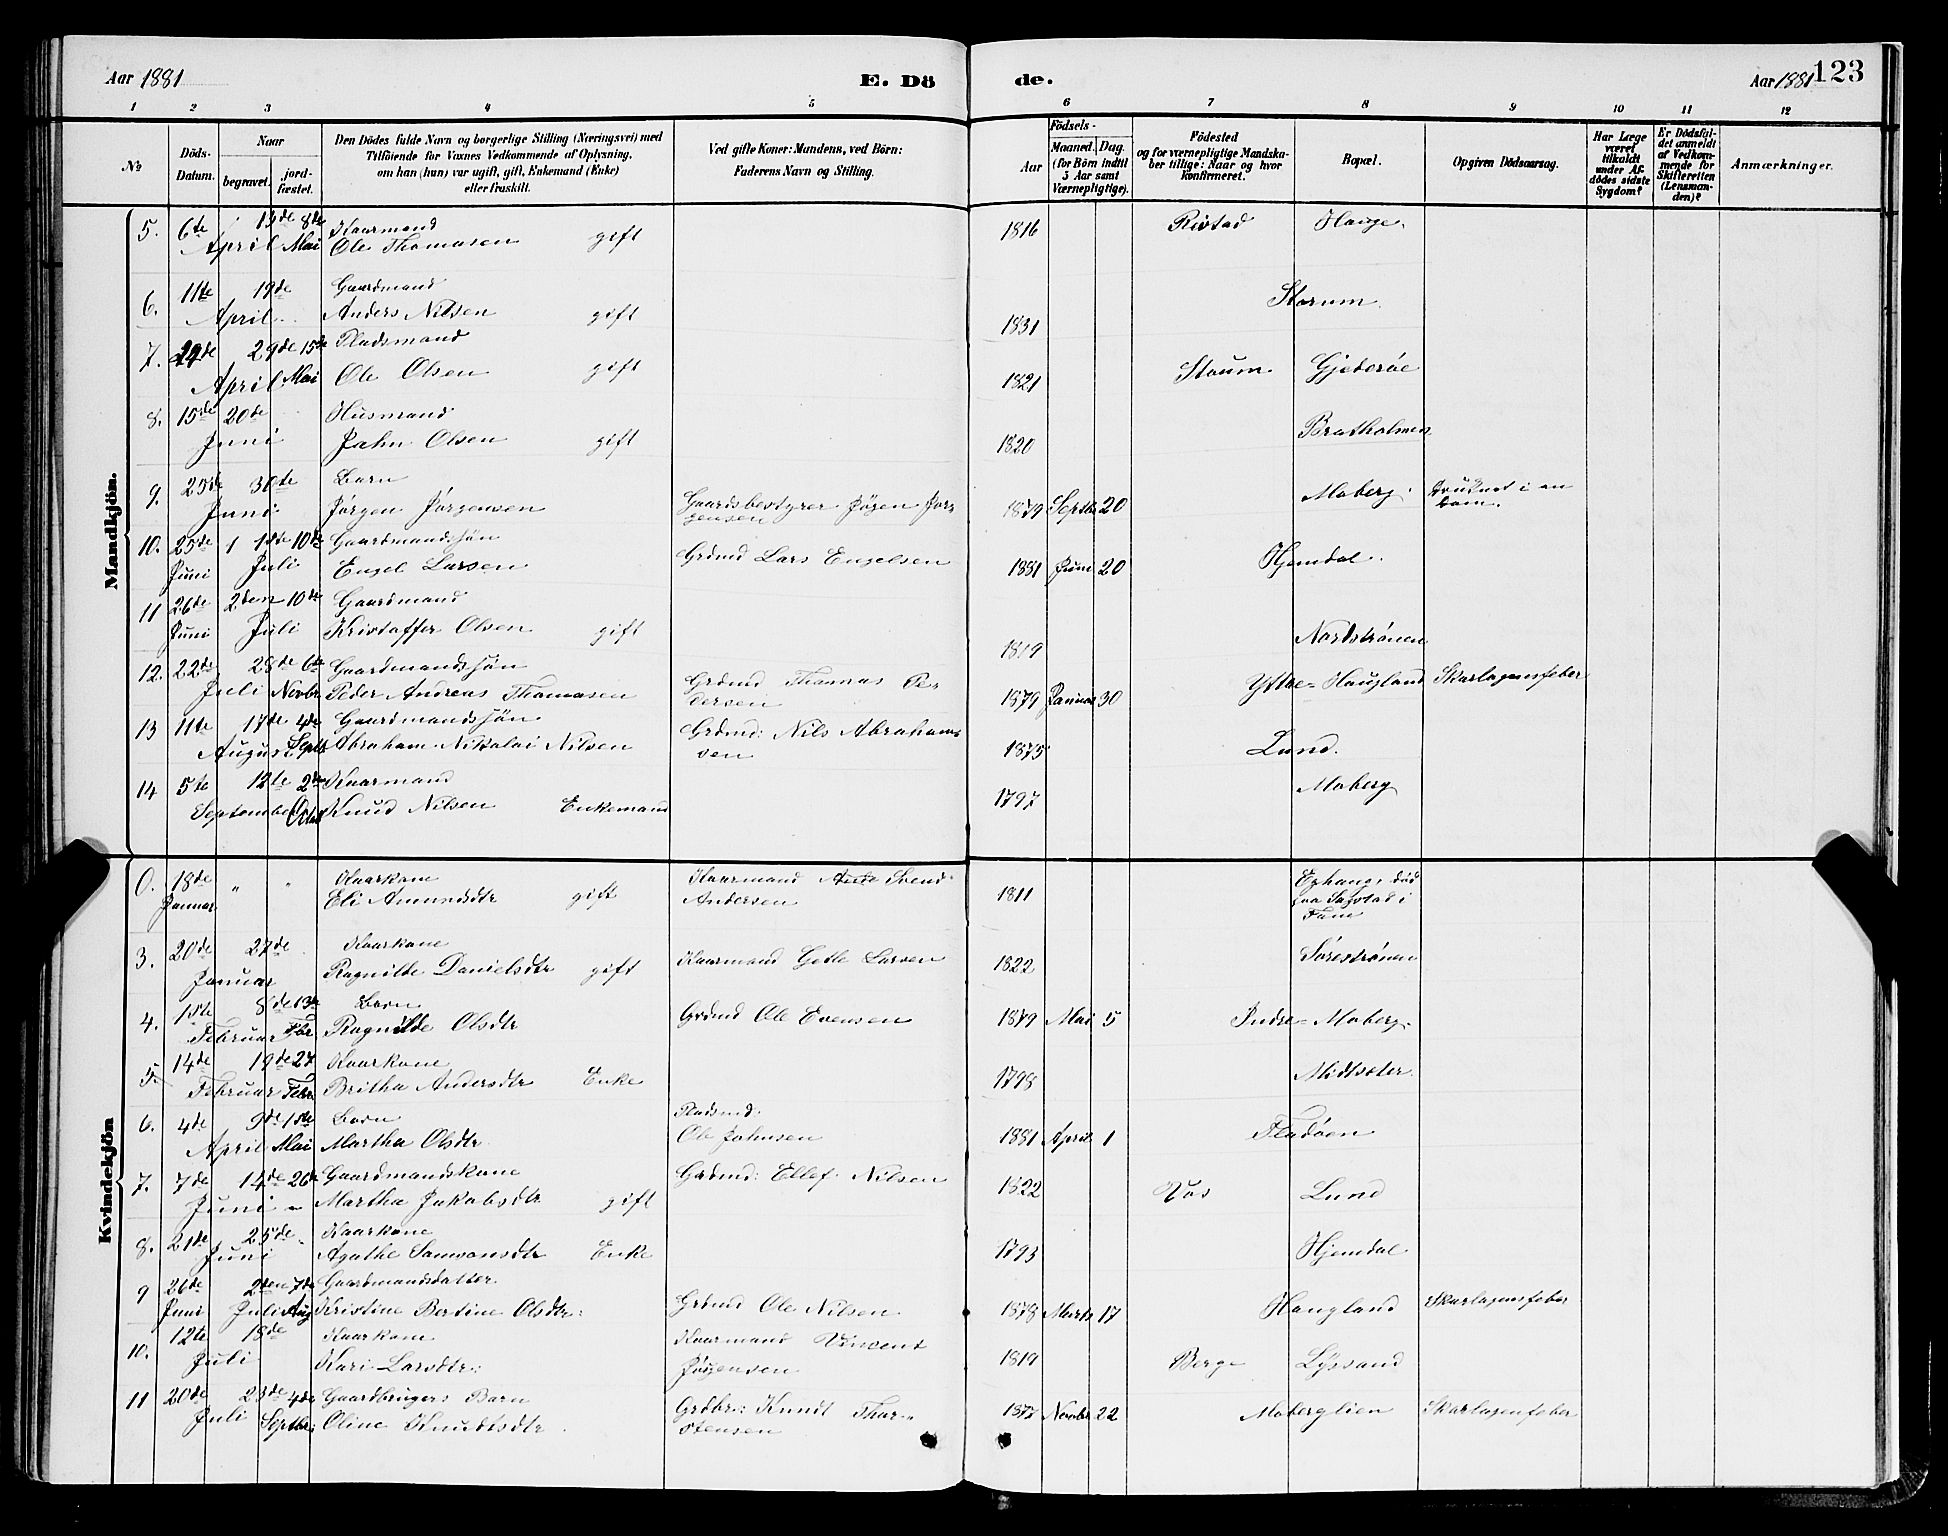 Aar 1881 E. Dö de. Aar 1881 123
1 2 3 4 5 6 7 8 9 10 11 12
№
Döds-Datum.
Naar
begravet.
jord-fæstet.
Den Dödes fulde Navn og borgerlige Stilling (Næringsvei) med
Tilföiende for Voxnes Vedkommende af Oplysning,
om han (hun) var ugift, gift, Enkemand (Enke)
eller fraskilt.
Ved gifte Koner: Mandens, ved Börn:
Faderens Navn og Stilling.
Födsels-
Aar
Maaned. Dag.
(for Börn indtil
5 Aar samt
Værnepligtige).
Födested
og for værnepligtige Mandska-
ber tillige: Naar og hvor
konfirmeret.
Bopæl.
Opgiven Dödsaarsag.
Har Læge
været
tilkaldt
under Af-
dödes sidste
Sygdom?
Er Dödsfal-
det anmeldt
af Vedkom-
mende for
Skifteretten
(Lensman-
den)?
Anmærkninger.
Mandkjön.
5. 6te 13de 8de Kaarmand 1816 Ristad Hauge.
April Mai Ole Thomasen gift
6. 11te 19de Gaardmand Storum.
April Anders Nilsen gift 1831
7. 29de 15de Pladsmand
April Mai Ole Olsen gift 1821 Stoum. Gjederøe
8. 15de 20de Husmand Bratholmen
Juni Jahn Olsen gift 1820
9. 25de 30te Barn Moberg. druknet i en
Juni Jørgen Jørgensen Gaardsbestyrer Jøgen Jør- 1879 Septbr 20 dam.
gensen
10. 25de 1ste 10de Gaardmandssøn Grdmd Lars Engelsen Hjemdal.
Juni Juli Engel Larsen 1881 Juni 20
11 26de 2den 10de Gaardmand
Juni Juli Kristoffer Olsen gift 1819 Nordstrønen
12. 22de 28de 6te Gaardmandssøn Grdmd Thomas Pe- Ytre-Haugland Skarlagensfeber
Juli Novbr Peder Andreas Thomasen dersen 1879 Januar 30
13 11te 17de 4de Gaardmandssøn Grdmd: Nils Abraham- Lund.
August Septb Abraham Nikolai Nilsen sen 1875
14 5te 12te 2den Kaarmand Moberg
September Octob Knud Nilsen Enkemand 1797
Kvindekjön
0. 18de " " Kaarkone Kaarmand Svend 1811 død
Januar Eli Amundsdtr gift Andersen paa Søgstad i
Fane
3. 20de 27de Kaarkone Kaarmand Gitle Larsen 1822 Sørestrønen
Januar Ragnilde Danielsdtr gift
4. 1ste 8de 13de Barn Grdmd Ole Evensen 1879 Mai 5 Indre-Moberg.
Februar Febr Ragnilde Olsdtr
5. 14de 19de 27 Kaarkone 1798 Midtsæter.
Februar Febr Britha Andersdtr Enke
6. 4de 9de 1ste Barn Pladsmd.
April Mai Martha Olsdtr. Ole Johnsen 1881 April 1 Fladøen
7. 7de 14de 26de Gaardmandskone Grdmd: Ellef Nilsen 1822 Vos Lund
Juni Martha Jakobsdtr gift
8. 21de 25de Kaarkone 1793 Hjemdal
Juni Agathe Samsonsdtr Enke
9 26de 2den 7de Gaardmandsdatter
Juni Juli Aug Kristine Bertine Olsdtr: Grdmd Ole Nilsen 1878 Marts 17 Haugland Skarlagensfeber
10. 12te 18de Kaarkone Kaarmand Vincent 1819 Berge Lyssand
Juli Kari Larsdtr: Jørgensen
11 20de 23de 4de Gaardbrugers Barn Grdbr: Knudt Thor- 1875 Novbr 22 Moberglien Skarlagensfeber
Juli Septbr: Oline Knudtsdtr stensen